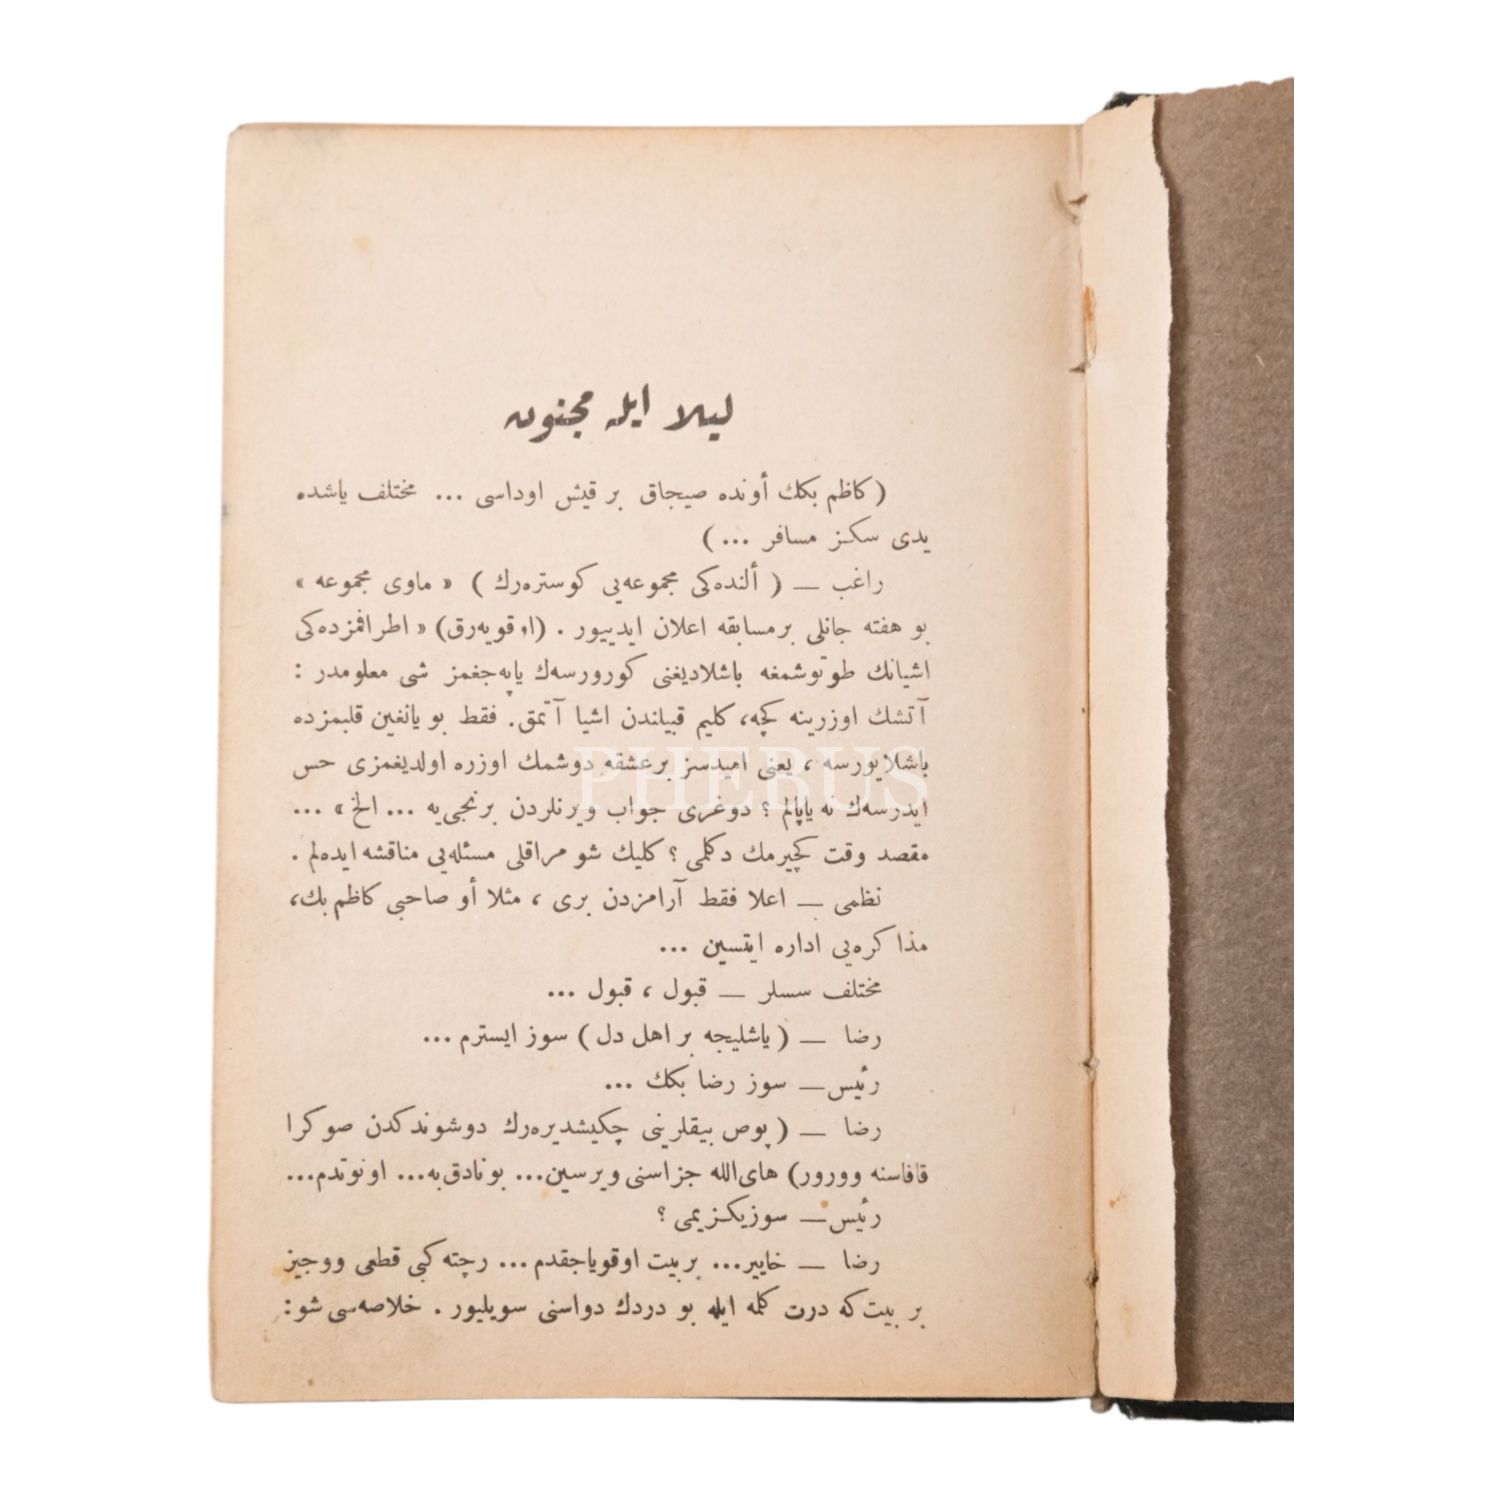 ليلا ايله مجنون
( كاظم بكك أونده صيجاق بر قيش اوداسى ... مختلف ياشده
يدى سكز مسافر ... )
راغب — ( ألنده‌كى مجموعه‌يى كوستره‌رك ) « ماوى مجموعه »
بو هفته جانلى بر مسابقه اعلان ايدييور . (اوقويه‌رق) « اطرافمزده‌كى
اشيانك طوتوشمغه باشلاديغنى كورورسه‌ك ياپه‌جغمز شى معلومدر :
آتشك اوزرينه كچه، كليم قبيلندن اشيا آتمق. فقط بو يانغين قلبمزده
باشلايورسه ، يعنى اميدسز بر عشقه دوشمك اوزره اولديغمزى حس
ايدرسه‌ك نه ياپالم ؟ دوغرى جواب ويرنلردن برنجى‌يه ... الخ » ...
مقصد وقت كچيرمك دكلمى ؟ كليك شو مراقلى مسئله‌يى مناقشه ايده‌لم .
نظمى — اعلا فقط آرامزدن برى ، مثلا أو صاحبى كاظم بك،
مذاكره‌يى اداره ايتسين ...
مختلف سسلر — قبول ، قبول ...
رضا — ( ياشليجه بر اهل دل ) سوز ايسترم ...
رئيس — سوز رضا بكك ...
رضا — ( پوص بيقلرينى چكيشديره‌رك دوشوندكدن صوكرا
قافاسنه وورور) هاى‌الله جزاسنى ويرسين... بونادق‌به... اونوتدم...
رئيس — سوزيكزيمى ؟
رضا — خايير... بر بيت اوقوياجقدم... رچته كبى قطعى ووجيز
بر بيت كه درت كلمه ايله بو دردك دواسنى سويليور . خلاصه‌سى شو :
PHEBUS